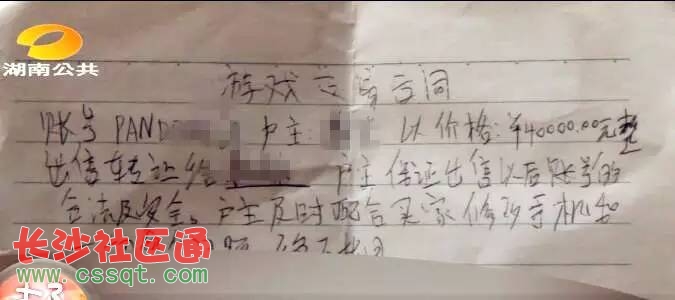 湖南公共
游戏交易合同
账号 PAND 户主: 以价格:¥40000.00元整
出售转让给 户主保证出售以后账号的
合法及安全。户主及时配合买家修改手机和
长沙社区通
www.cssqt.com